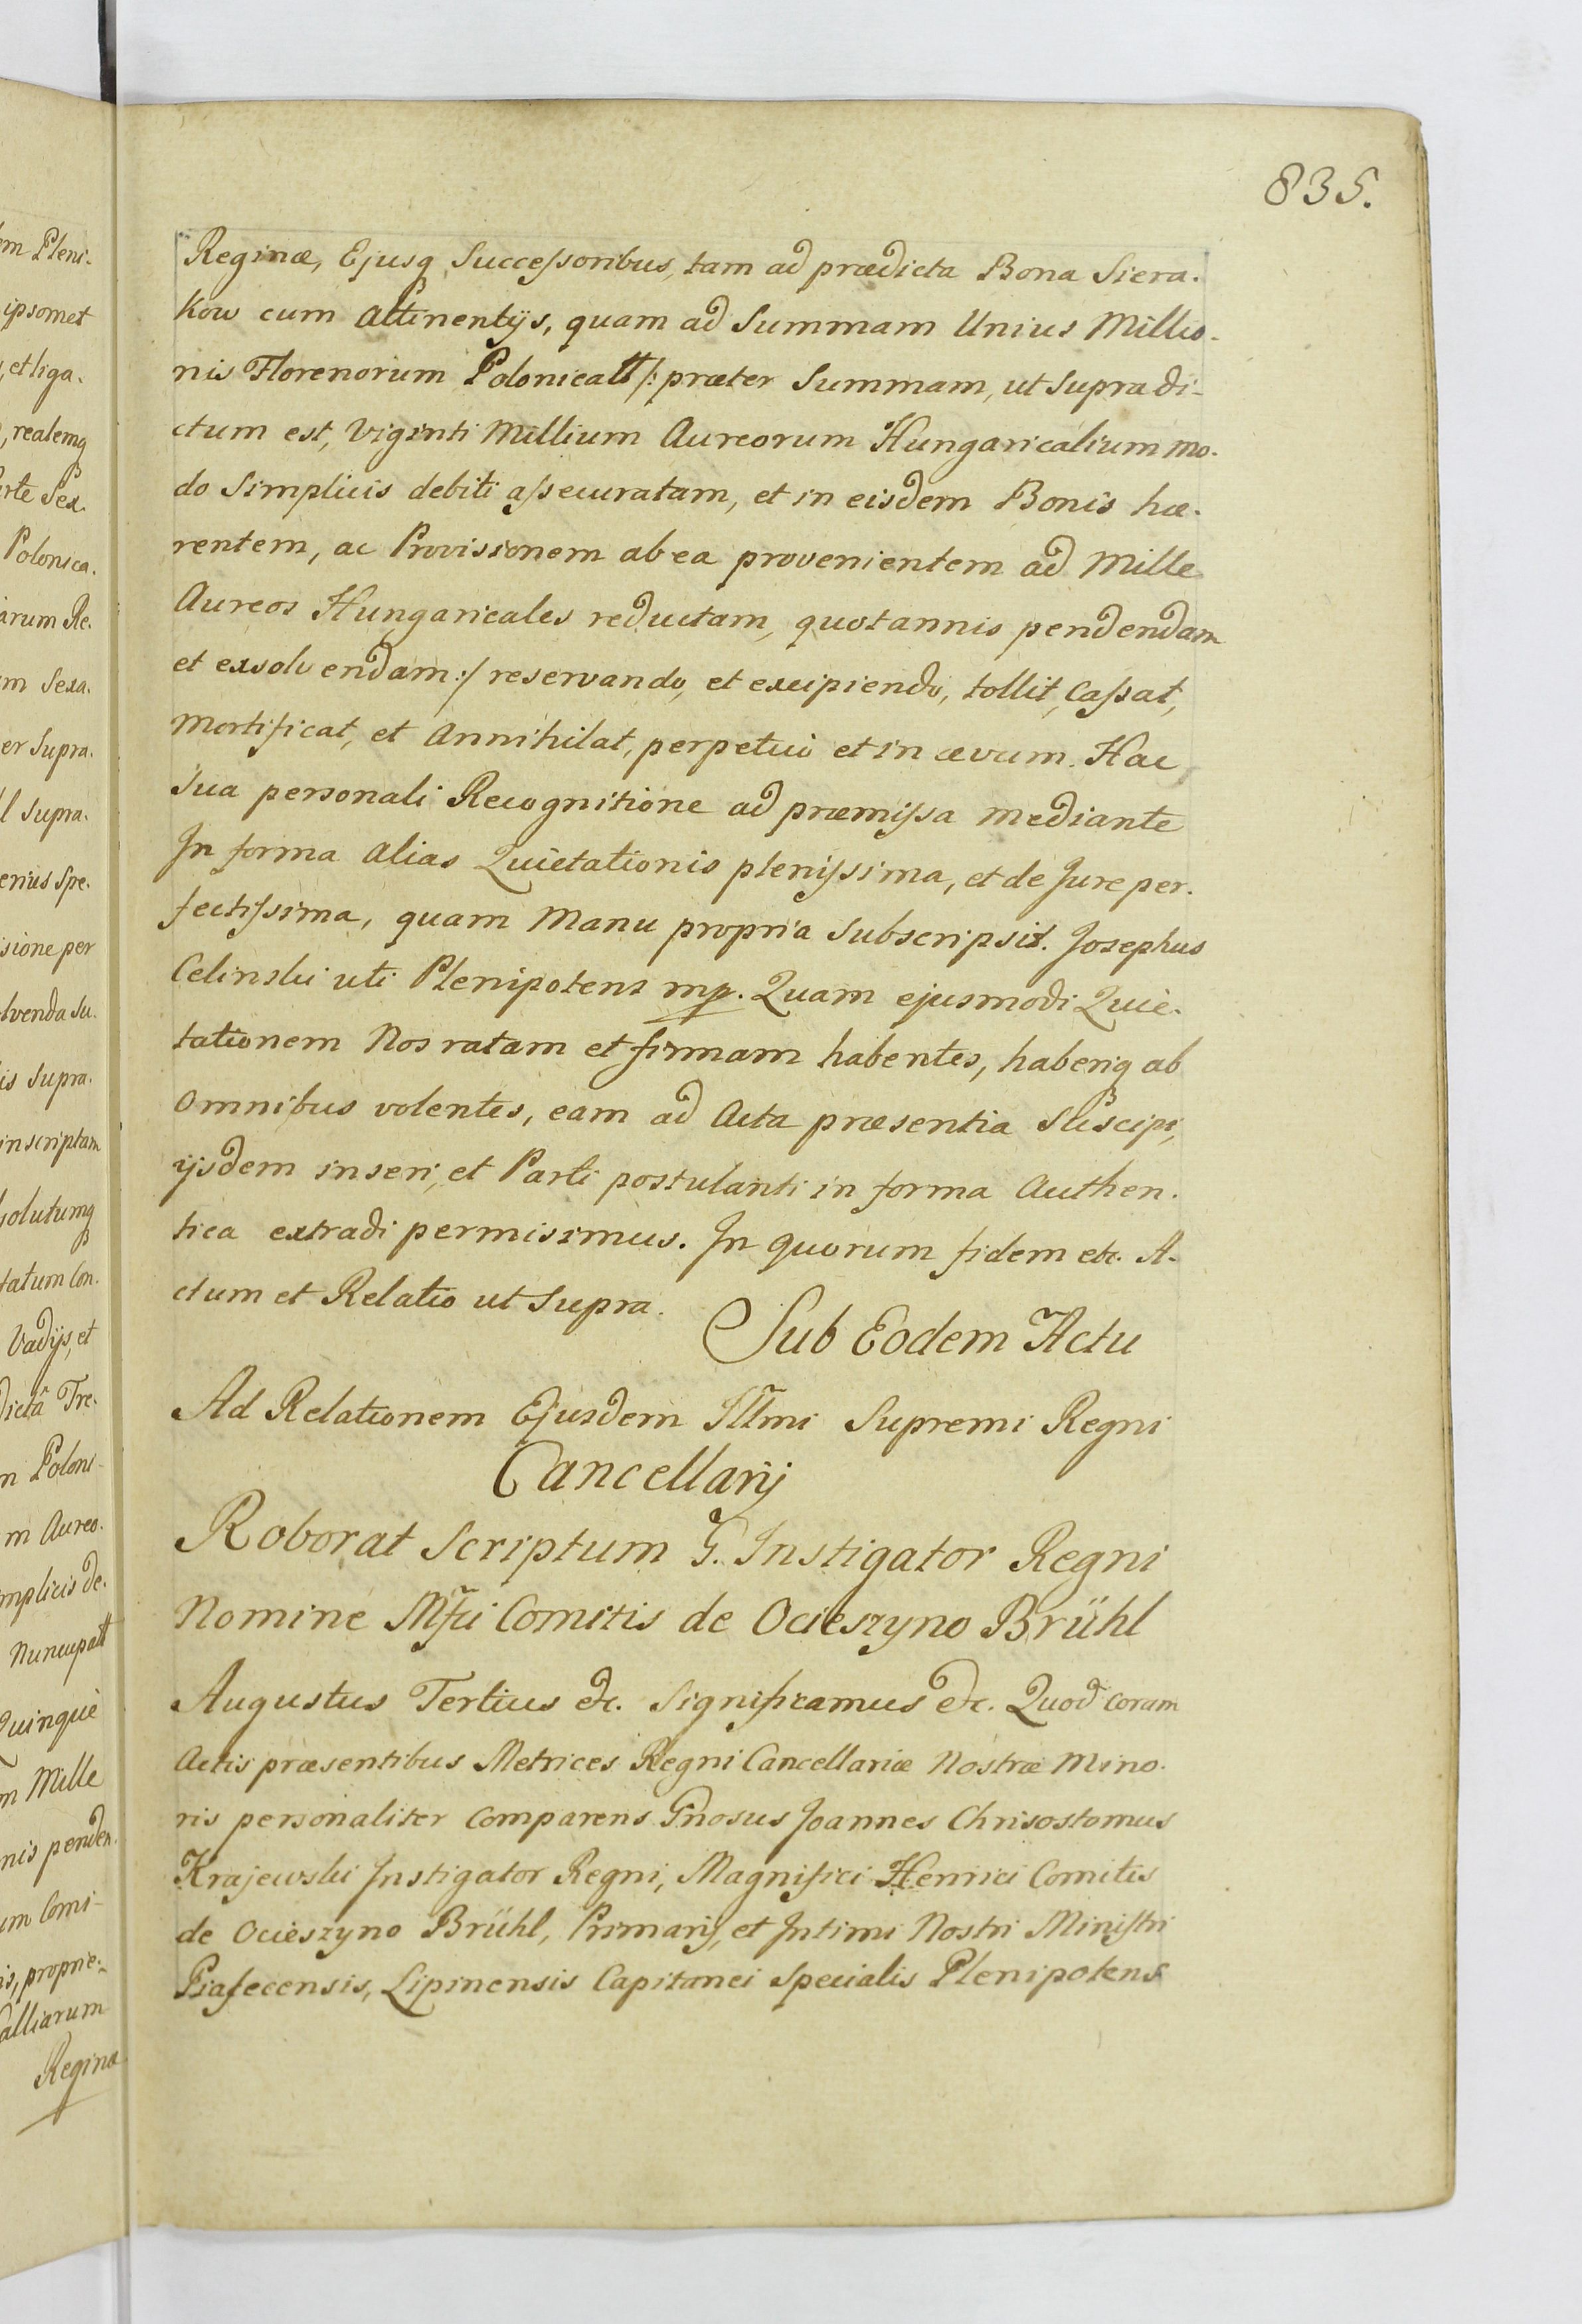 835.
Reginæ, Ejusq Successoribus, tam ad prædicta Bona Siera-
kow cum Attinentijs, quam ad Summam Unius Millio-
nis Florenorum Polonicall /: præter Summam, ut supra di-
ctum est, Viginti Millium Aureorum Hungaricalium mo-
do Simplicis debiti assecuratam, et in eisdem Bonis hæ-
rentem, ac Provisionem ab ea provenientem ad Mille
Aureos Hungaricales reductam, quotannis pendendam
et exsolvendam :/ reservando, et excipiendo, tollit, Cassat,
Mortificat, et Annihilat, perpetuò et in ævum. Hac
sua personali Recognitione ad præmissa mediante
In forma alias Quietationis plenissima, et de Jure per-
fectissima, quam Manu propria Subscripsit. Josephus
Celinski uti Plenipotens mp. Quam ejusmodi Quie-
tationem Nos ratam et firmam habentes, haberiq ab
omnibus volentes, eam ad Acta præsentia Suscipi,
ijsdem inseri, et Parti postulanti in forma Authen-
tica extradi permisimus. In quorum fidem etc. A-
ctum et Relatio ut Supra.
Sub Eodem Actu
Ad Relationem Ejusdem Illmi Supremi Regni
Cancellarij
Roborat Scriptum G. Instigator Regni
Nomine Mfci Comitis de Ocieszyno Brühl
Augustus Tertius etc. Significamus etc. Quod coram
Actis præsentibus Metrices Regni Cancellariæ Nostræ Mino-
ris personaliter Comparens Gnosus Joannes Chrisostomus
Krajewski Instigator Regni, Magnifici Henrici Comitis
de Ocieszyno Brühl, Primarij, et Intimi Nostri Ministri
Piasecensis, Lipinensis Capitanei Specialis Plenipotens
em Pleni-
ipsomet
, et liga-
, realemq
Polonica-
arum Re-
m Sexa-
er Supra-
l Supra-
enius Spe-
isione per
lvenda Su-
is Supra-
inscriptam
solutumq
tatum Con-
Vadijs, et
dictâ Tre-
m Poloni-
m Aureo-
mplicis de-
Nuncupatt
Quinque
m Mille
nis penden-
um Comi-
is, proprie-
Galliarum
Reginæ